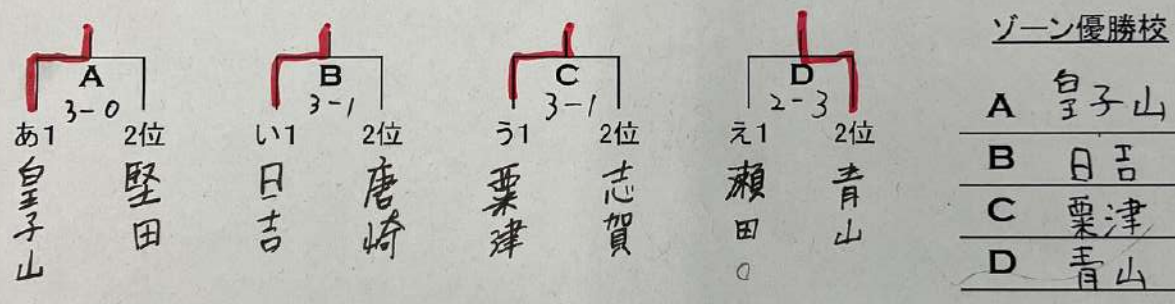 ゾーン優勝校
A
3-0
あ1 2位
皇子山
堅田
B
3-1
い1 2位
日吉
唐崎
C
3-1
う1 2位
粟津
志賀
D
2-3
え1 2位
瀬田
青山
A 皇子山
B 日吉
C 粟津
D 青山